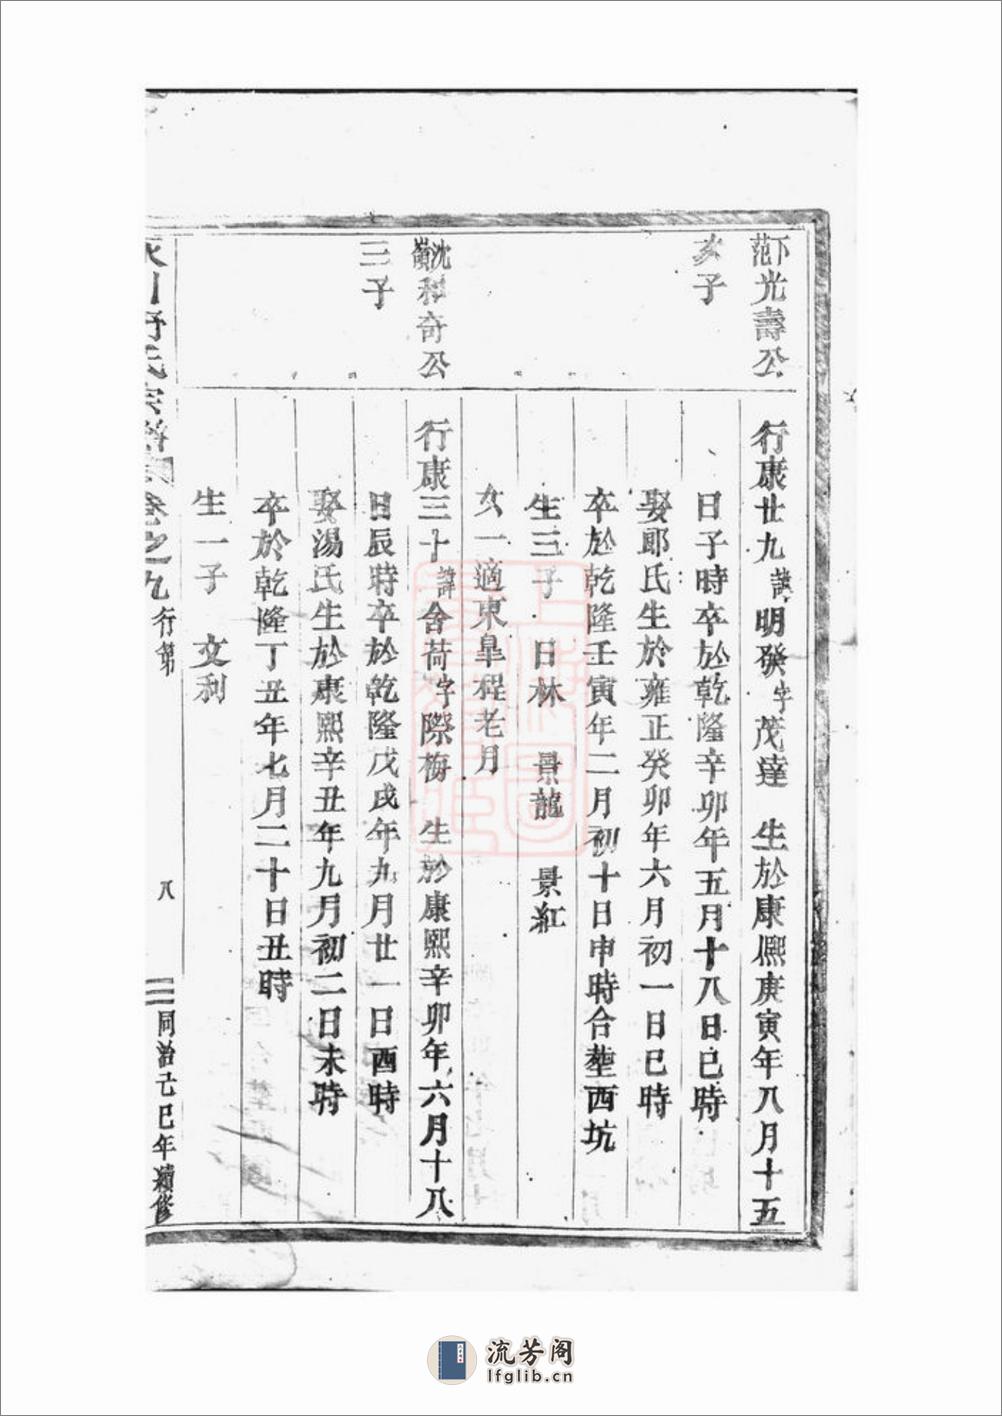 下范光壽公
亥子
行康廿九諱明癸字茂達 生於康熙庚寅年八月十五
日子時卒於乾隆辛卯年五月十八日巳時
娶郎氏生於雍正癸卯年六月初一日巳時
卒於乾隆壬寅年二月初十日申時合塟西坑
生三子 日林 景龍 景紅
女一適東皐程老月
沈嶺和奇公
三子
行康三十諱舍荷字際梅 生於康熙辛卯年六月十八
日辰時卒於乾隆戊戌年九月廿一日酉時
娶湯氏生於康熙辛丑年九月初二日未時
卒於乾隆丁丑年七月二十日丑時
生一子 文利
舒氏宗譜 卷之九 行第 八 同治己巳年續修
流芳阁
lfglib.cn